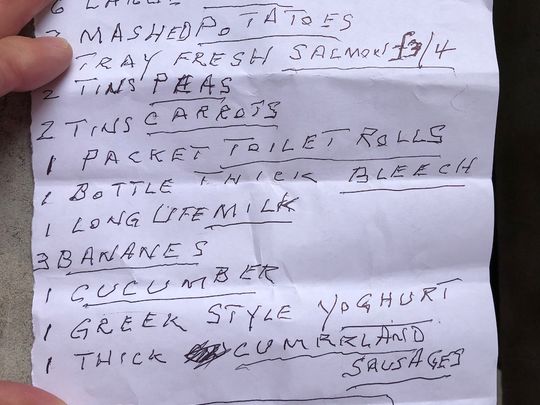 6 LARGE
2 MASHED POTATOES
TRAY FRESH SALMON £3/4
2 TINS PEAS
2 TINS CARROTS
1 PACKET TOILET ROLLS
1 BOTTLE THICK BLEECH
1 LONG LIFE MILK
3 BANANES
1 CUCUMBER
1 GREEK STYLE YOGHURT
1 THICK CUMBRLAND
SAUSAGES